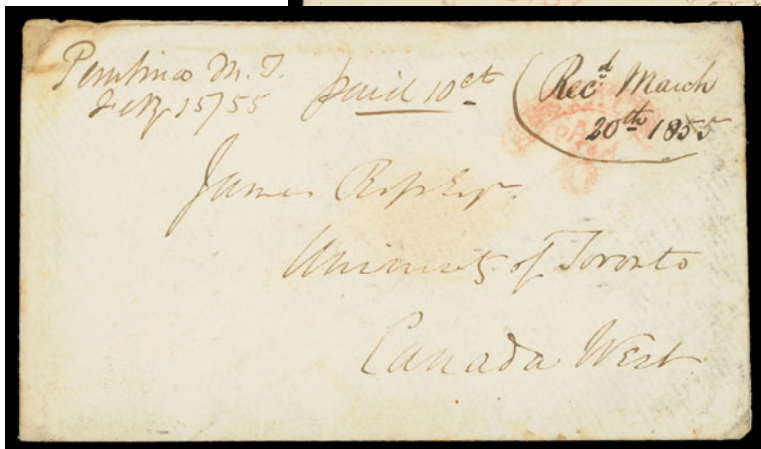 Pembina M. T.
Feby 15/55
paid 10ct
Recd March
20th 1855
PAID
James Ross Esqr.
University of Toronto
Canada West